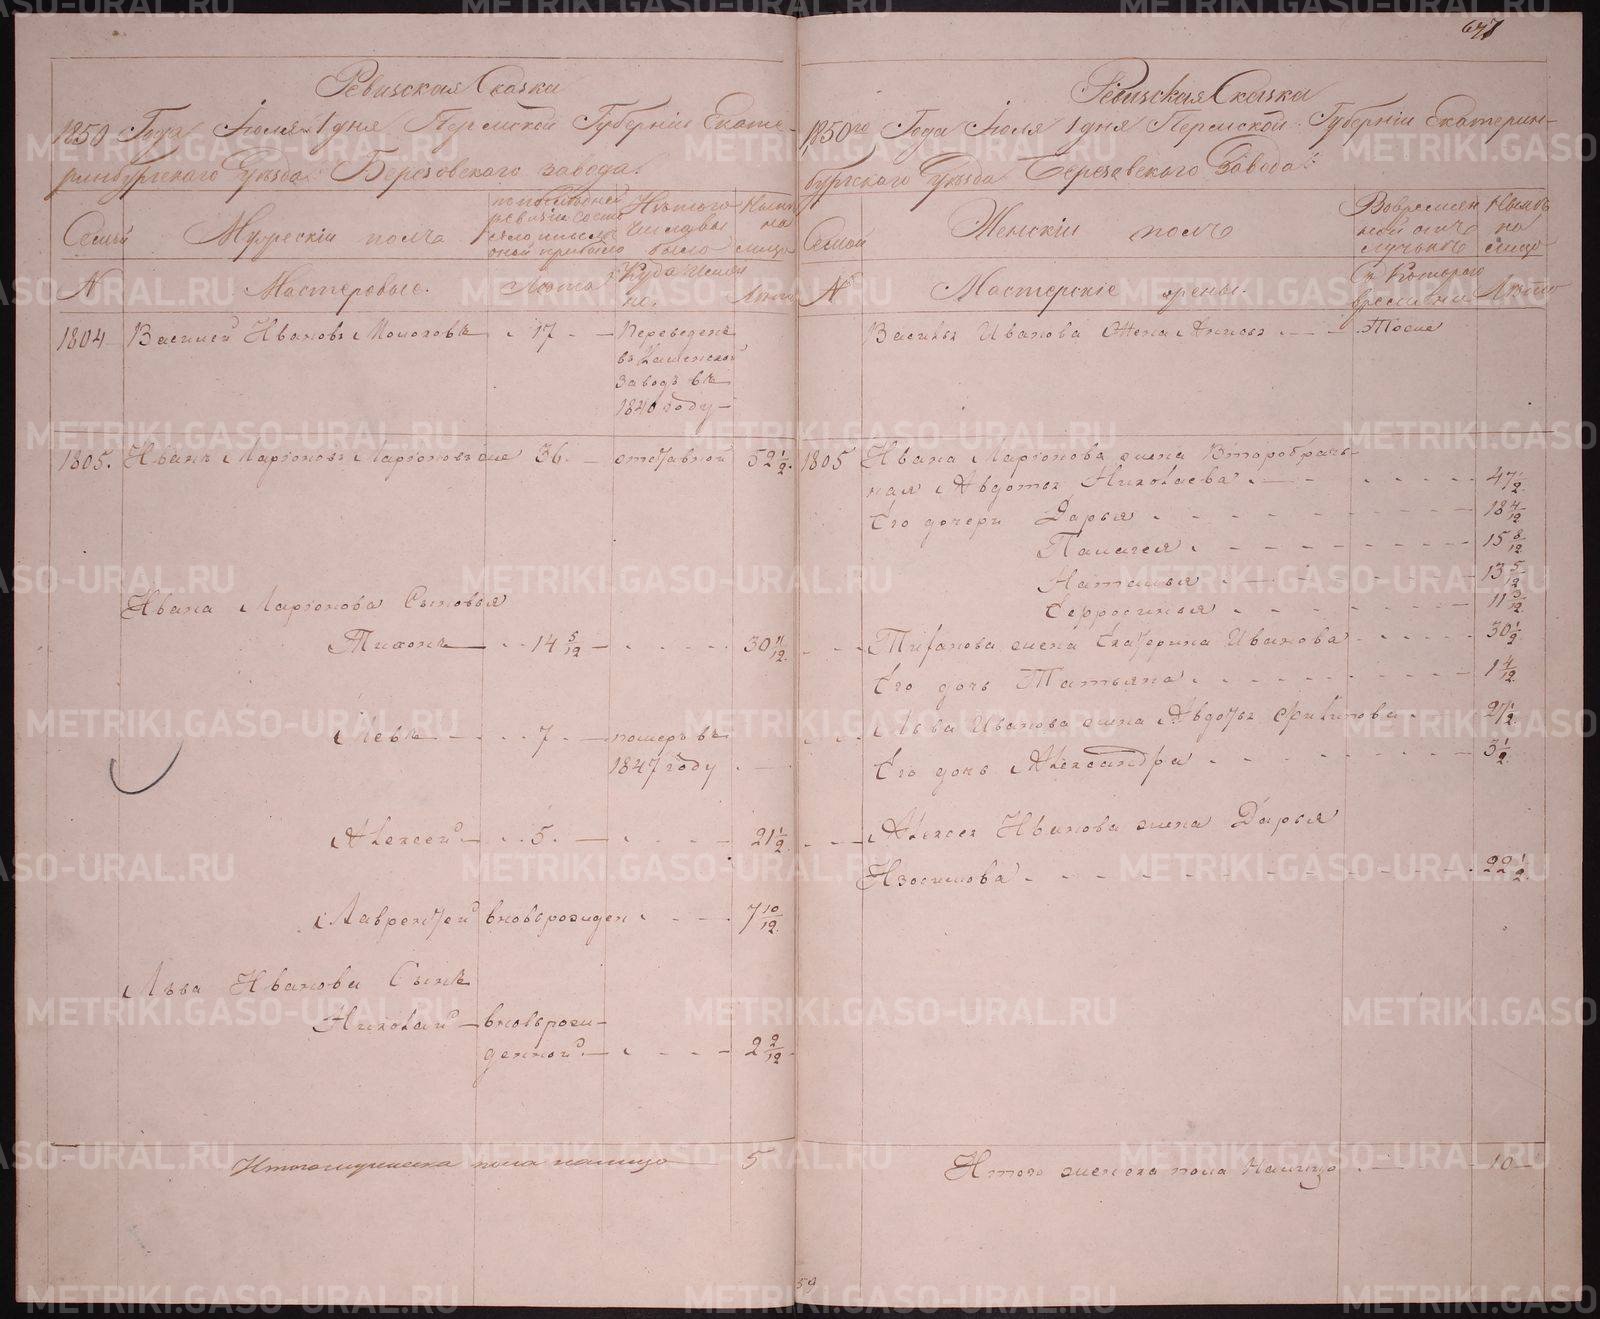 677
Ревизская Сказка
1850 Года Июля 1 дня Пермской Губернiи Екате-
ринбургскаго Уѣзда Березовскаго завода.
Семьи
Мужескiй полъ
по последней
ревизiи состо
Изъ того
числа выбыло
На лицо
N
Мастеровые.
Лѣта
Куда именно
Лѣта
1804
Василей Ивановъ
17
Переведенъ
въ Каменской
Заводъ въ
1840 году
1805.
Иванъ Ларiоновъ Ларiоновъ
36.
отставной
52 1/2
Ивана Ларiонова Сыновья
Тихонъ
14 5/12
30 11/12
Левъ
7
померъ въ
1847 году
Алексей
5.
21 1/2
Лаврентей
вновьрожден
7 10/12
Льва Иванова Сынъ
Николай
вновьрож-
денной
2 2/12
Итого мужеска пола налицо
5
Ревизская Сказка
1850го Года Июля 1 дня Пермской Губернiи Екатерин-
бургскаго Уѣзда Березовскаго Завода
Семьи
Женскiй полъ
Вовремен
ной отлу
На лицо
N
Мастерскiе жены.
Съ котораго
времени
Лѣта
Василья Иванова Жена Анисья
Тоже
1805
Ивана Ларiонова жена Второбрач-
ная Авдотья Николаева
47 1/2
Его дочери Дарья
18 4/12
Палагея
15 8/12
Наталья
13 5/12
Ефросинья
11 3/12
Тихонова жена Екатерина Иванова
30 1/2
Его дочь Татьяна
1 4/12
Льва Иванова жена Авдотья Филипова
27 1/2
Его дочь Александра
3 1/2
Алексея Иванова жена Дарья
Изосимова
22 1/2
Итого женска пола Налицо
10
59
METRIKI.GASO-URAL.RU